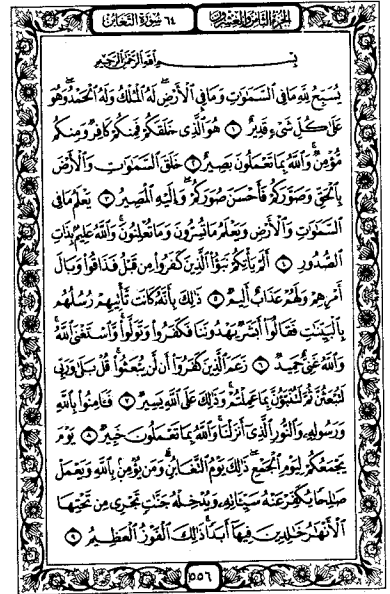 الجزء الثامن والعشرون ٦٤ سورة التغابن
بسم الله الرحمن الرحيم
يُسَبِّحُ لِلَّهِ مَا فِي السَّمَاوَاتِ وَمَا فِي الْأَرْضِ لَهُ الْمُلْكُ وَلَهُ الْحَمْدُ وَهُوَ
عَلَىٰ كُلِّ شَيْءٍ قَدِيرٌ ١ هُوَ الَّذِي خَلَقَكُمْ فَمِنكُمْ كَافِرٌ وَمِنكُم
مُّؤْمِنٌ وَاللَّهُ بِمَا تَعْمَلُونَ بَصِيرٌ ٢ خَلَقَ السَّمَاوَاتِ وَالْأَرْضَ
بِالْحَقِّ وَصَوَّرَكُمْ فَأَحْسَنَ صُوَرَكُمْ وَإِلَيْهِ الْمَصِيرُ ٣ يَعْلَمُ مَا فِي
السَّمَاوَاتِ وَالْأَرْضِ وَيَعْلَمُ مَا تُسِرُّونَ وَمَا تُعْلِنُونَ وَاللَّهُ عَلِيمٌ بِذَاتِ
الصُّدُورِ ٤ أَلَمْ يَأْتِكُمْ نَبَؤُا الَّذِينَ كَفَرُوا مِن قَبْلُ فَذَاقُوا وَبَالَ
أَمْرِهِمْ وَلَهُمْ عَذَابٌ أَلِيمٌ ٥ ذَٰلِكَ بِأَنَّهُ كَانَت تَّأْتِيهِمْ رُسُلُهُم
بِالْبَيِّنَاتِ فَقَالُوا أَبَشَرٌ يَهْدُونَنَا فَكَفَرُوا وَتَوَلَّوا وَّاسْتَغْنَى اللَّهُ
وَاللَّهُ غَنِيٌّ حَمِيدٌ ٦ زَعَمَ الَّذِينَ كَفَرُوا أَن لَّن يُبْعَثُوا قُلْ بَلَىٰ وَرَبِّي
لَتُبْعَثُنَّ ثُمَّ لَتُنَبَّؤُنَّ بِمَا عَمِلْتُمْ وَذَٰلِكَ عَلَى اللَّهِ يَسِيرٌ ٧ فَآمِنُوا بِاللَّهِ
وَرَسُولِهِ وَالنُّورِ الَّذِي أَنزَلْنَا وَاللَّهُ بِمَا تَعْمَلُونَ خَبِيرٌ ٨ يَوْمَ
يَجْمَعُكُمْ لِيَوْمِ الْجَمْعِ ذَٰلِكَ يَوْمُ التَّغَابُنِ وَمَن يُؤْمِن بِاللَّهِ وَيَعْمَلْ
صَالِحًا يُكَفِّرْ عَنْهُ سَيِّئَاتِهِ وَيُدْخِلْهُ جَنَّاتٍ تَجْرِي مِن تَحْتِهَا
الْأَنْهَارُ خَالِدِينَ فِيهَا أَبَدًا ذَٰلِكَ الْفَوْزُ الْعَظِيمُ ٩
٥٥٦